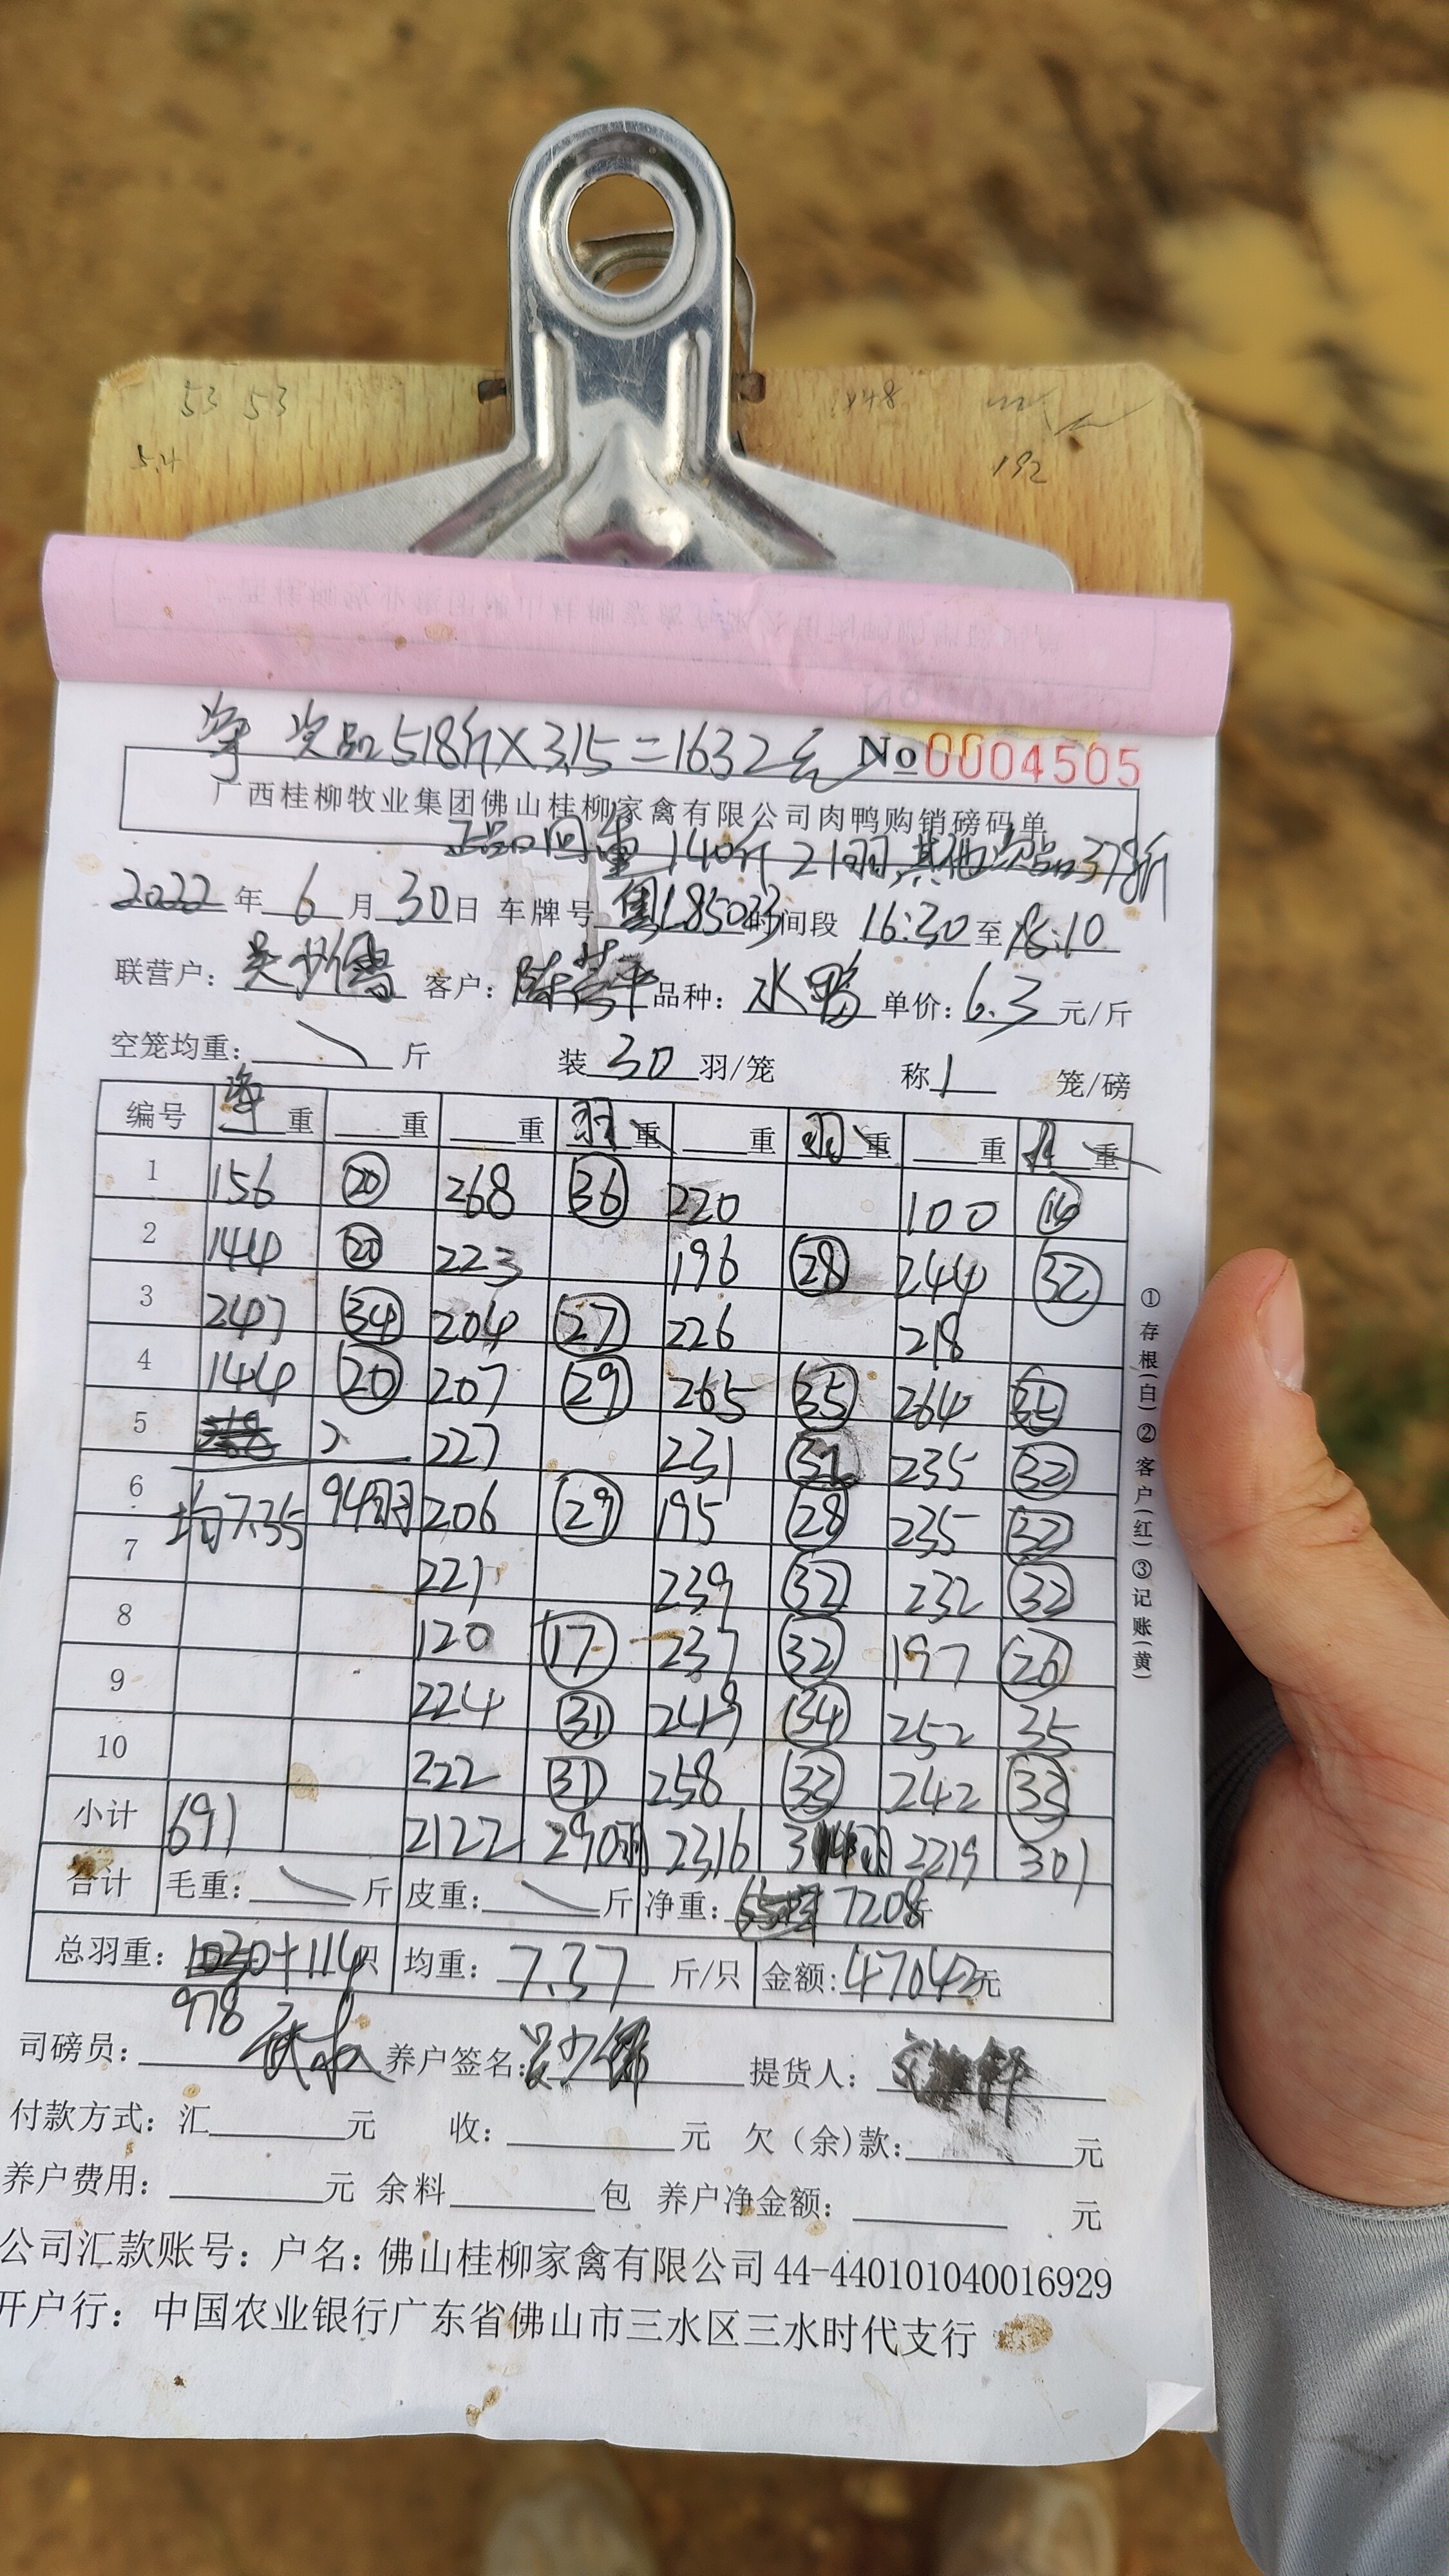 53 53
5.4
192
净 次品518斤×3.15=1632元 No 0004505
广西桂柳牧业集团佛山桂柳家禽有限公司肉鸭购销磅码单
正品回重140斤21羽,其他次品378斤
2022年6月30日 车牌号 粤L85033 时间段 16:30至18:10
联营户: 客户: 品种:水鸭 单价:6.3元/斤
空笼均重: 斤 装30羽/笼 称1 笼/磅
编号 净重 重 重 羽重 重 羽重 重 重
1 156 20 268 36 220 100
2 144 20 223 196 28 244 32
3 247 34 204 27 226 218
4 144 20 207 29 265 35 264 35
5 227 231 235 32
6 均7.35 94羽 206 29 195 28 235 32
7 221 239 32 232 32
8 120 17 237 32 197 26
9 224 31 249 34 252 35
10 222 31 258 33 242 33
小计 691 2122 290羽 2316 2219 301
合计 毛重: 斤 皮重: 斤 净重: 7208斤
总羽重:1020+114只 均重:7.37斤/只 金额:47042元
978
司磅员: 养户签名: 提货人:
付款方式:汇 元 收: 元 欠(余)款: 元
养户费用: 元 余料 包 养户净金额: 元
公司汇款账号:户名:佛山桂柳家禽有限公司 44-440101040016929
开户行:中国农业银行广东省佛山市三水区三水时代支行
①存根(白)②客户(红)③记账(黄)